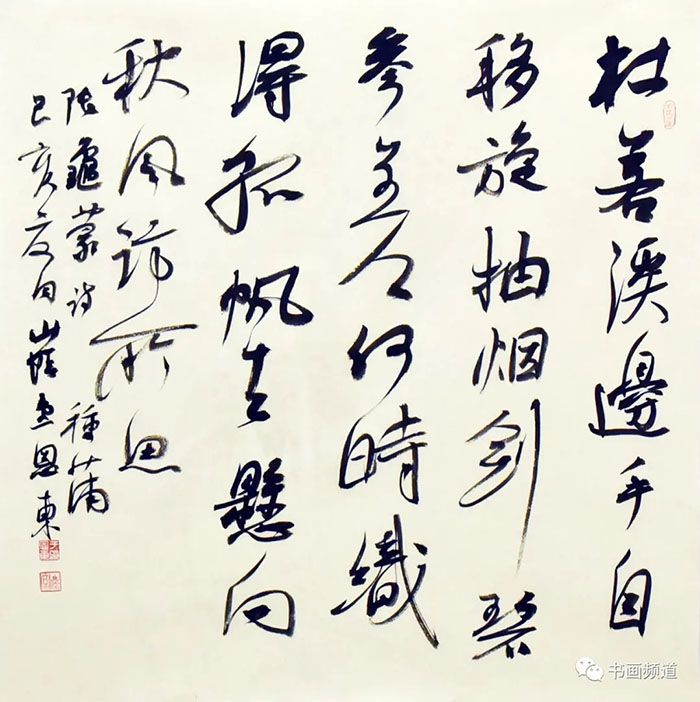 杜若溪邊手自
移旋抽烟剑碧
参差何時織
得孤帆去懸向
秋风访所思
陆龜蒙诗 種蒲
己亥夏日山陰恩東
书画频道